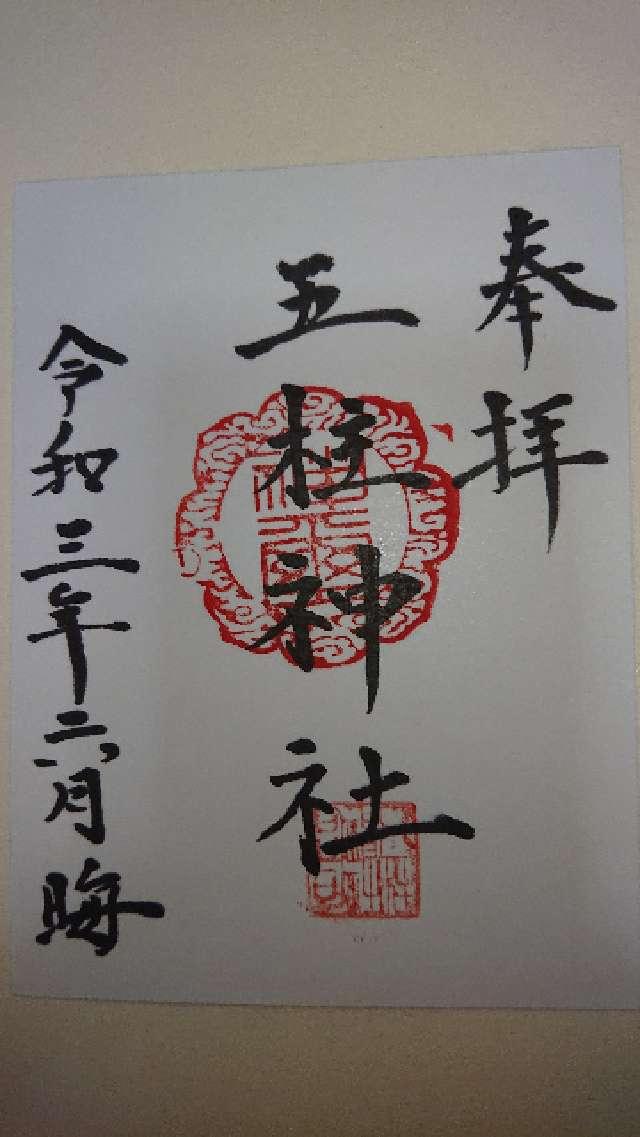 奉拝
五柱神社
令和三年六月晦